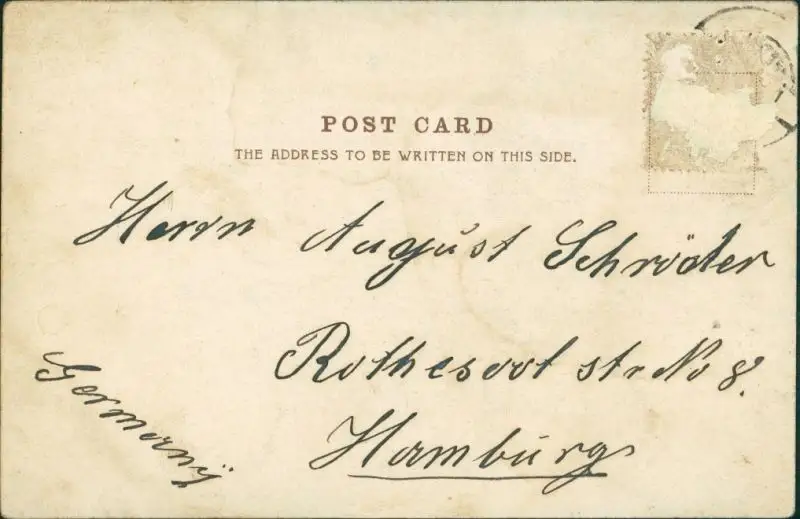 POST CARD
THE ADDRESS TO BE WRITTEN ON THIS SIDE.
Herrn August Schröder
Rothesoot str No 8.
Hamburg
Germany